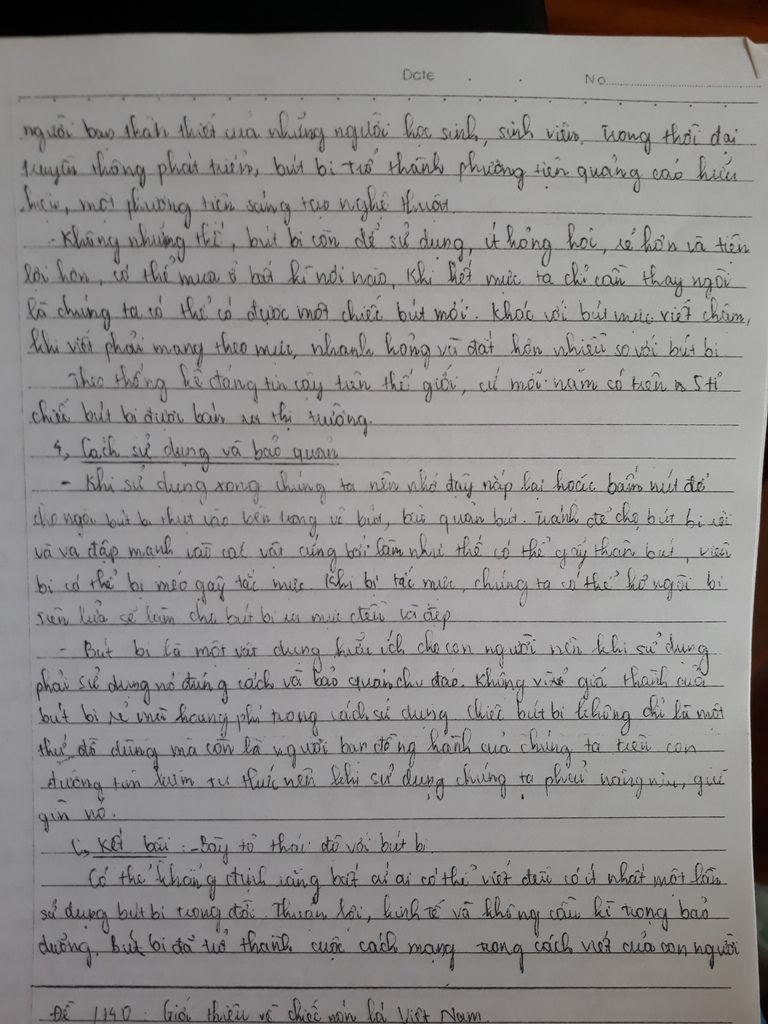 Date . . No
người bạn thân thiết của những người học sinh, sinh viên. Trong thời đại
truyền thông phát triển, bút bi trở thành phương tiện quảng cáo hữu
hiệu, một phương tiện sáng tạo nghệ thuật.
- Không những thế, bút bi còn dể sử dụng, ít hỏng hóc, rẻ hơn và tiện
lợi hơn, có thể mua ở bất kì nơi nào, khi hết mực ta chỉ cần thay ngòi
là chúng ta có thể có được một chiếc bút mới. Khác với bút mực viết chấm,
khi viết phải mang theo mực, nhanh hỏng và đắt hơn nhiều so với bút bi
Theo thống kê đáng tin cậy trên thế giới, cứ mỗi năm có trên 5 tỉ
chiếc bút bi được bán ra thị trường.
4, Cách sử dụng và bảo quản
- Khi sử dụng xong chúng ta nên nhớ đậy nắp lại hoặc bấm nút để
cho ngòi bút bi thụt vào bên trong vỏ bút, bảo quản bút. Tránh để cho bút bi rơi
và va đập mạnh vào các vật cứng bởi làm như thế có thể gãy thân bút, viên
bi có thể bị méo gây tắc mực. Khi bị tắc mực, chúng ta có thể hơ ngòi bi
trên lửa sẽ làm cho bút bi ra mực đều và đẹp
- Bút bi là một vật dụng hữu ích cho con người nên khi sử dụng
phải sử dụng nó đúng cách và bảo quản chu đáo. Không vì giá thành của
bút bi rẻ mà hoang phí trong cách sử dụng. Chiếc bút bi không chỉ là một
thứ đồ dùng mà còn là người bạn đồng hành của chúng ta trên con
đường tìm kiếm tri thức nên khi sử dụng chúng ta phải nâng niu, giữ
gìn nó.
C, Kết bài: - Bày tỏ thái độ với bút bi.
Có thể khẳng định rằng bất cứ ai có thể viết đều có ít nhất một lần
sử dụng bút bi trong đời. Thuận lợi, kinh tế và không cầu kì trong bảo
dưỡng. Bút bi đã trở thành cuộc cách mạng trong cách viết của con người
Đề 1140: Giới thiệu về chiếc nón lá Việt Nam.